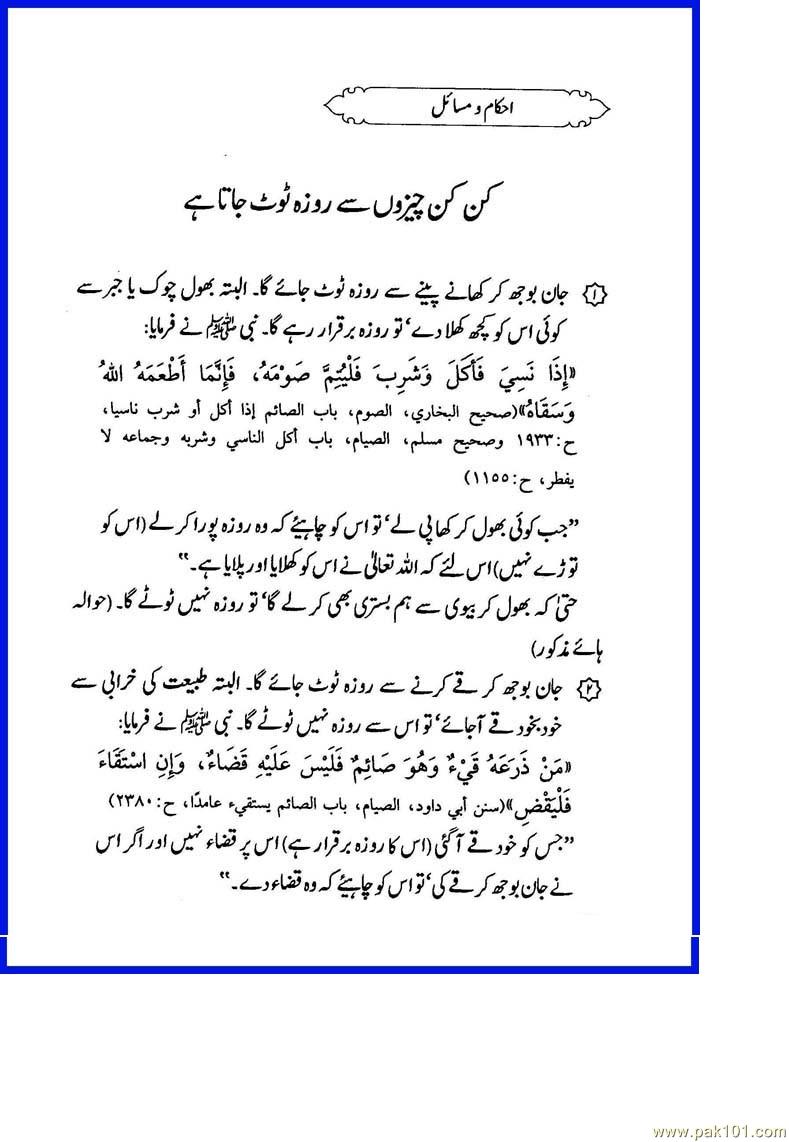 احکام و مسائل
کن کن چیزوں سے روزہ ٹوٹ جاتا ہے
۱ جان بوجھ کر کھانے پینے سے روزہ ٹوٹ جائے گا۔ البتہ بھول چوک یا جبر سے
کوئی اس کو کچھ کھلا دے‘ تو روزہ برقرار رہے گا۔ نبی ﷺ نے فرمایا:
«إِذَا نَسِيَ فَأَكَلَ وَشَرِبَ فَلْيُتِمَّ صَوْمَهُ، فَإِنَّمَا أَطْعَمَهُ اللهُ
وَسَقَاهُ»(صحيح البخاري، الصوم، باب الصائم إذا أكل أو شرب ناسيا،
ح:١٩٣٣ وصحيح مسلم، الصيام، باب أكل الناسي وشربه وجماعه لا
يفطر، ح:١١٥٥)
”جب کوئی بھول کر کھا پی لے‘ تو اس کو چاہیئے کہ وہ روزہ پورا کر لے (اس کو
توڑے نہیں) اس لئے کہ اللہ تعالیٰ نے اس کو کھلایا اور پلایا ہے۔“
حتیٰ کہ بھول کر بیوی سے ہم بستری بھی کر لے گا‘ تو روزہ نہیں ٹوٹے گا۔ (حوالہ
ہائے مذکور)
۲ جان بوجھ کر قے کرنے سے روزہ ٹوٹ جائے گا۔ البتہ طبیعت کی خرابی سے
خود بخود قے آجائے‘ تو اس سے روزہ نہیں ٹوٹے گا۔ نبی ﷺ نے فرمایا:
«مَنْ ذَرَعَهُ قَيْءٌ وَهُوَ صَائِمٌ فَلَيْسَ عَلَيْهِ قَضَاءٌ، وَإِنِ اسْتَقَاءَ
فَلْيَقْضِ»(سنن أبي داود، الصيام، باب الصائم يستقيء عامدًا، ح:٢٣٨٠)
”جس کو خود قے آگئی (اس کا روزہ برقرار ہے) اس پر قضاء نہیں اور اگر اس
نے جان بوجھ کر قے کی‘ تو اس کو چاہیئے کہ وہ قضاء دے۔“
www.pak101.com